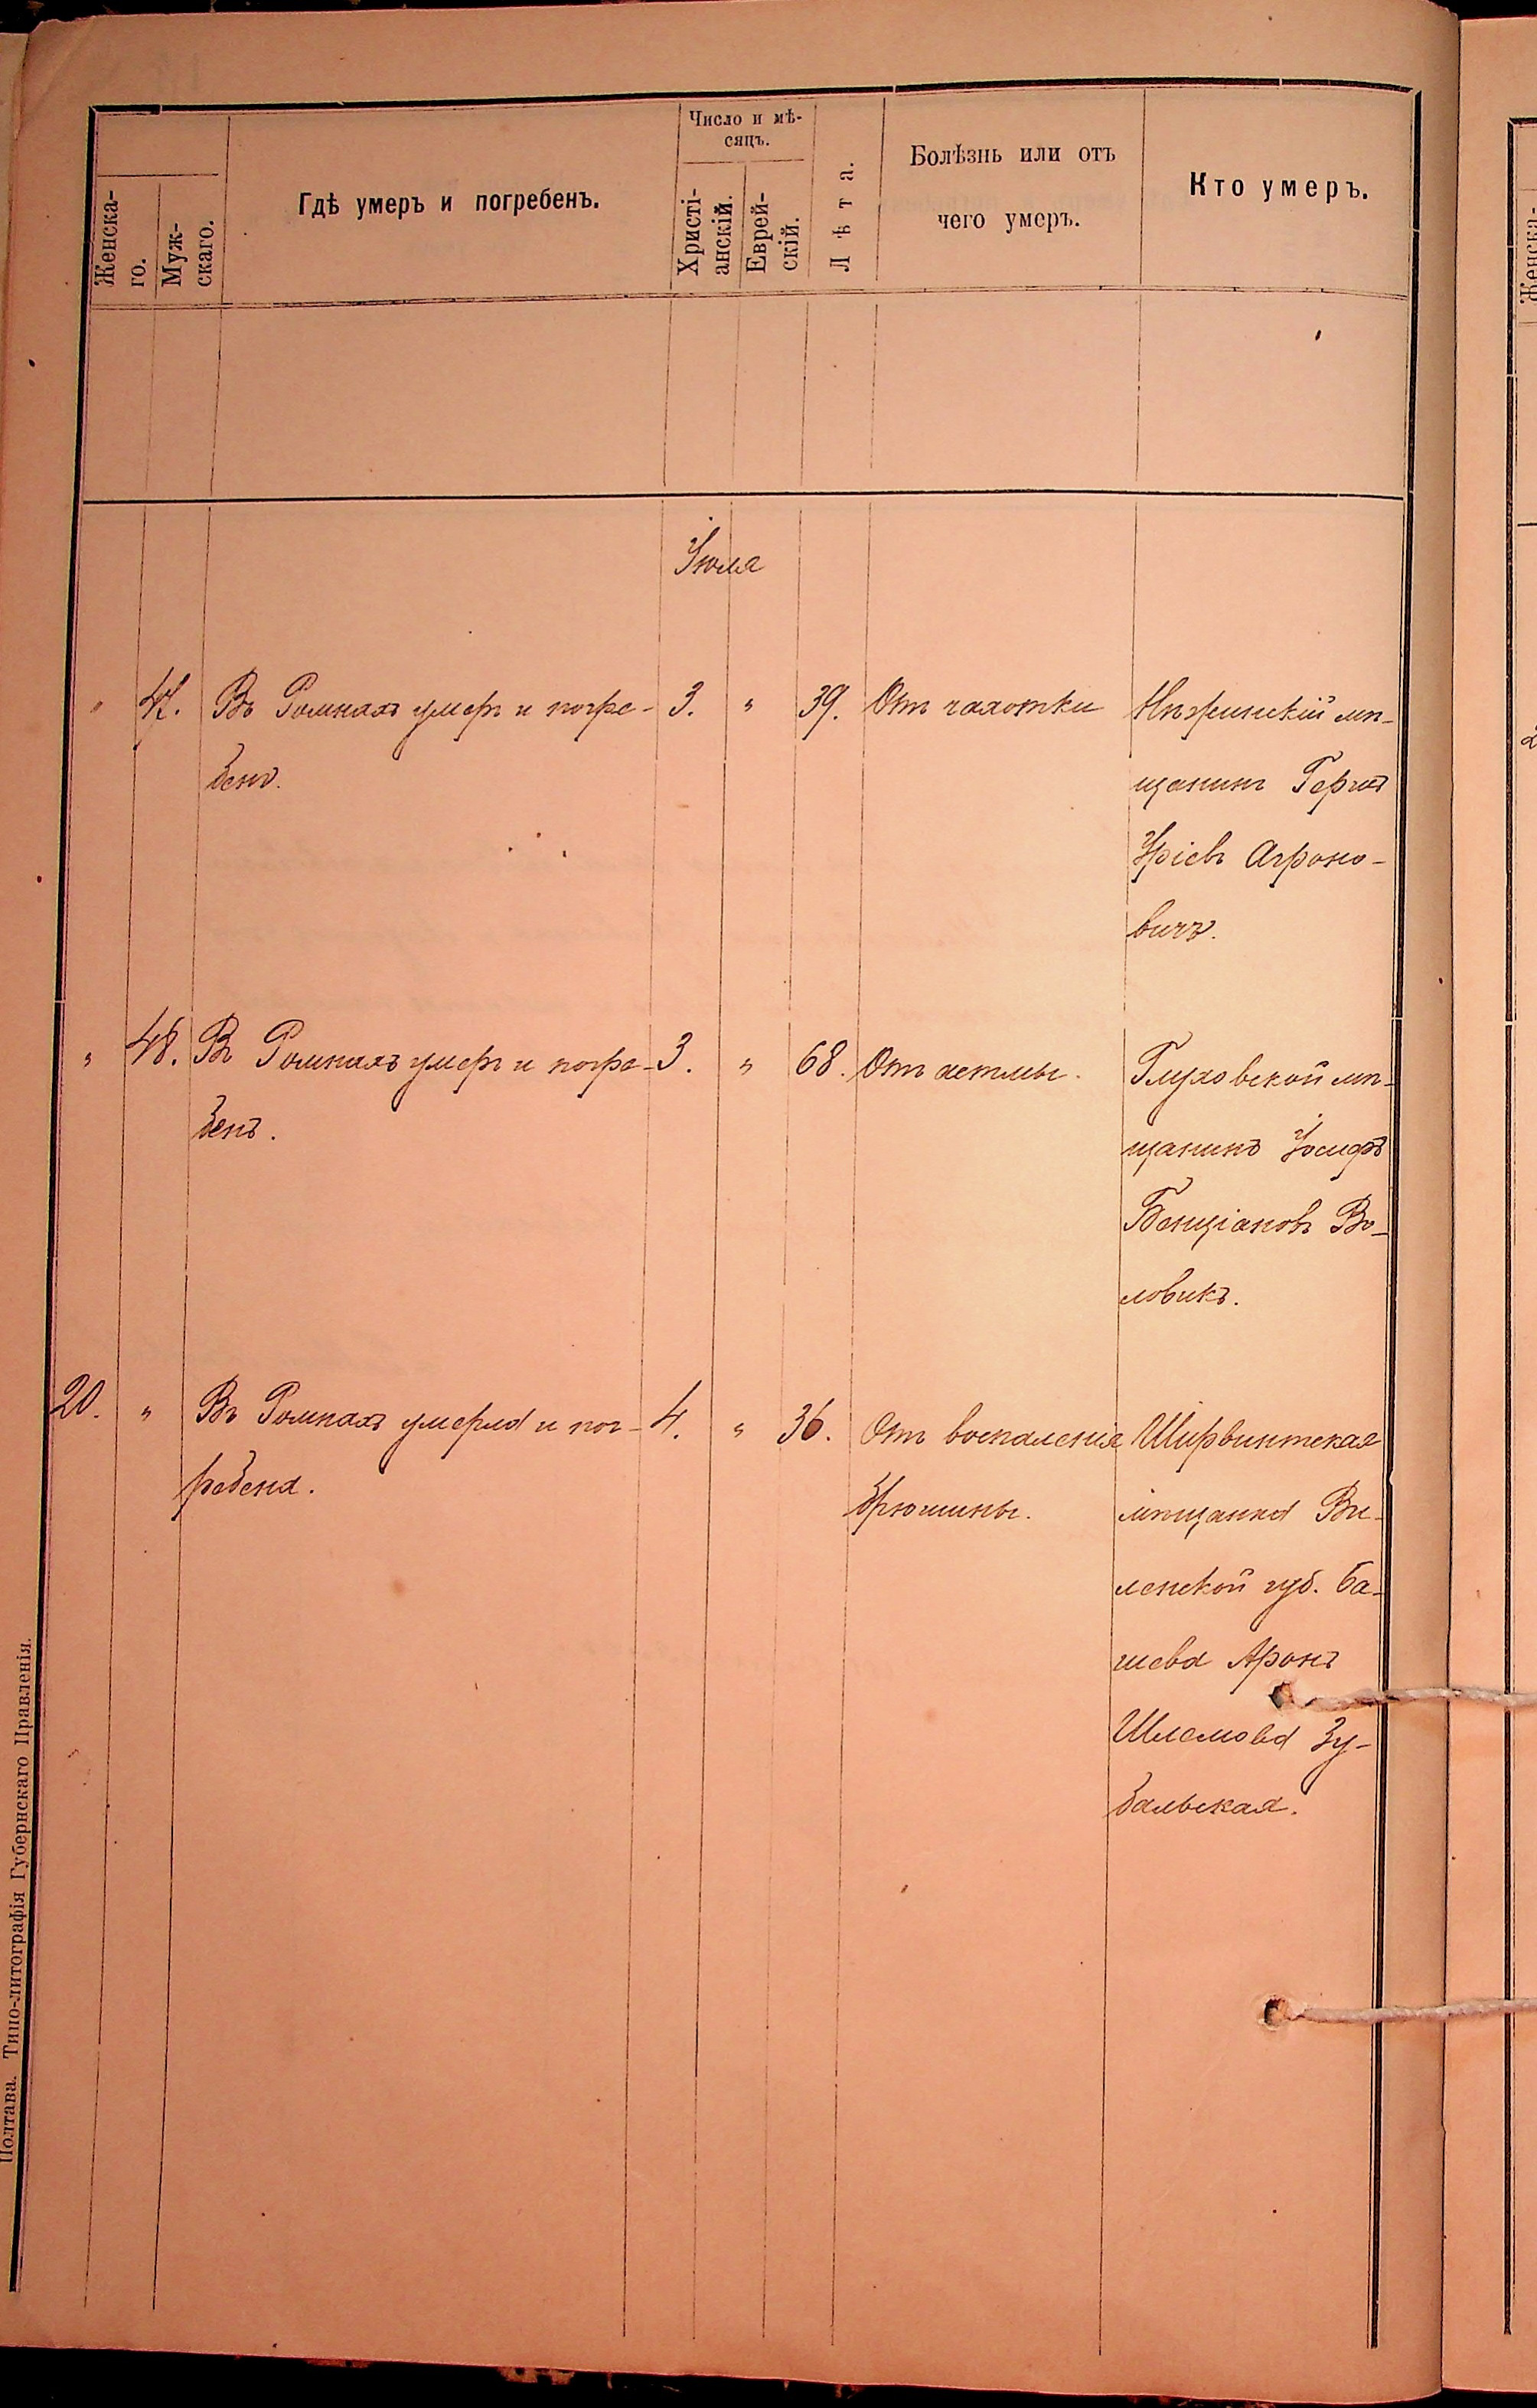 Женска-
го.
Муж-
скаго.
Гдѣ умеръ и погребенъ.
Число и мѣ-
сяцъ.
Христі-
анскій.
Еврей-
скій.
Лѣта.
Болѣзнь или отъ
чего умеръ.
Кто умеръ.
Іюля
" 47. Въ Ромнахъ умеръ и погре- 3. " 39. Отъ чахотки Нѣжинскій мѣ-
бенъ. щанинъ Герцъ
Уріевъ Агроно-
вичъ.
" 48. Въ Ромнахъ умеръ и погре- 3. " 68. Отъ астмы. Глуховской мѣ-
бенъ. щанинъ Іосифъ
Бенціановъ Во-
ловикъ.
20. " Въ Ромнахъ умерла и пог- 4. " 36. Отъ воспаленія Ширвинтская
ребена. брюшины. мѣщанка Ви-
ленской губ. Ба-
шева Аронъ
Шлемова Зу-
бальская.
Полтава. Типо-литографія Губернскаго Правленія.
Женска-